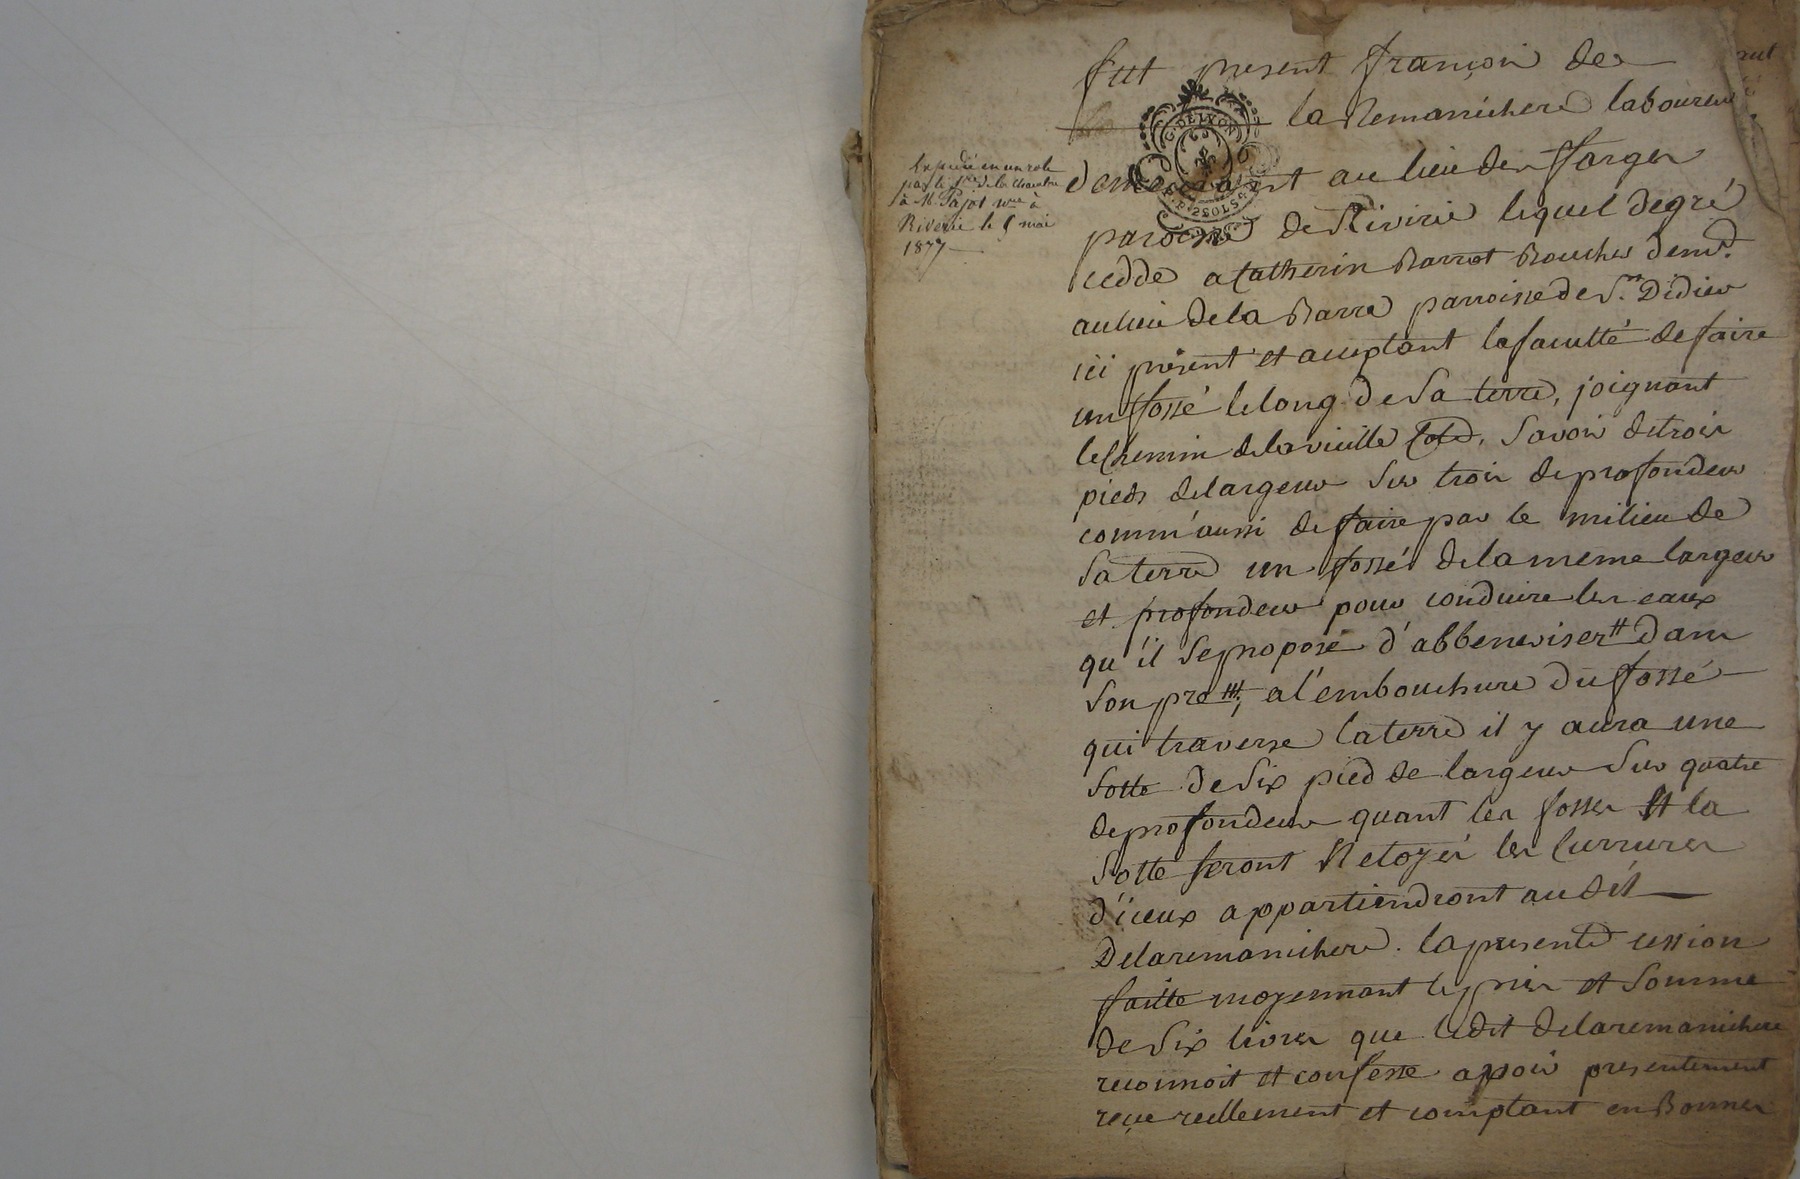 fut present françoi de
la Remanichere laboureur
demeurant au lieu des farges
paroisse de Rivirie lequel degré
cedde a Catherin Barrot Boucher demt.
au lieu de la Barre parroisse de St. Didier
ici present et acceptant la faculté de faire
un fossé le long de sa terre, joignant
le chemin de la vieille Cote, savoir de trois
pieds de largeur sur trois de profondeur
comm'aussi de faire par le milieu de
sa terre un fossé de la meme largeur
et profondeur pour conduire les eaux
qu'il se propose d'abbeneviser dans
son pré, a l'embouchure du fossé
qui traverse la terre il y aura une
sotte de six pied de largeur sur quatre
de profondeur quant les fosses et la
sotte seront netoyés les currures
d'iceux appartiendront audit
Delaremanichere. la presente cession
faitte moyennant le prix et somme
de six livres que ledit delaremanichere
reconnoit et confesse avoir presentement
reçue reellement et comptant en Bonnes
Expedié en un role
par le Sre. de la chambre
à M. Pajot nre à
Riverie le 5 mai
1877
G. DE LYON
2 SOLS